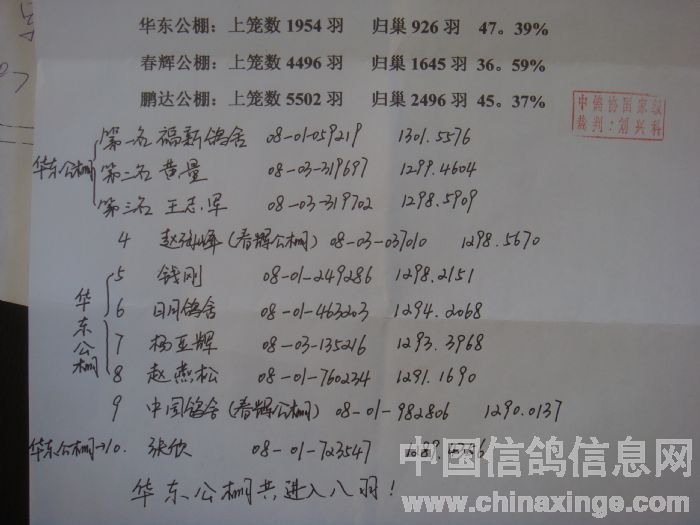 华东公棚：上笼数 1954 羽 归巢 926 羽 47。39%
春辉公棚：上笼数 4496 羽 归巢 1645 羽 36。59%
鹏达公棚：上笼数 5502 羽 归巢 2496 羽 45。37%
中鸽协国家级
裁判：刘兴科
华东公棚
第一名 福新鸽舍 08-01-059219 1301.5576
第二名 黄量 08-03-319697 1299.4604
第三名 王志军 08-03-319702 1298.5909
4 赵 峰（春辉公棚）08-03-037010 1298.5670
华东公棚
5 钱刚 08-01-249286 1298.2151
6 日月鸽舍 08-01-463203 1294.2068
7 杨亚辉 08-03-135216 1293.3968
8 赵燕松 08-01-760234 1291.1690
9 中国鸽舍（春辉公棚）08-01-982806 1290.0137
华东公棚→10. 张欣 08-01-723547
华东公棚共进入八羽！
中国信鸽信息网
www.chinaxinge.com